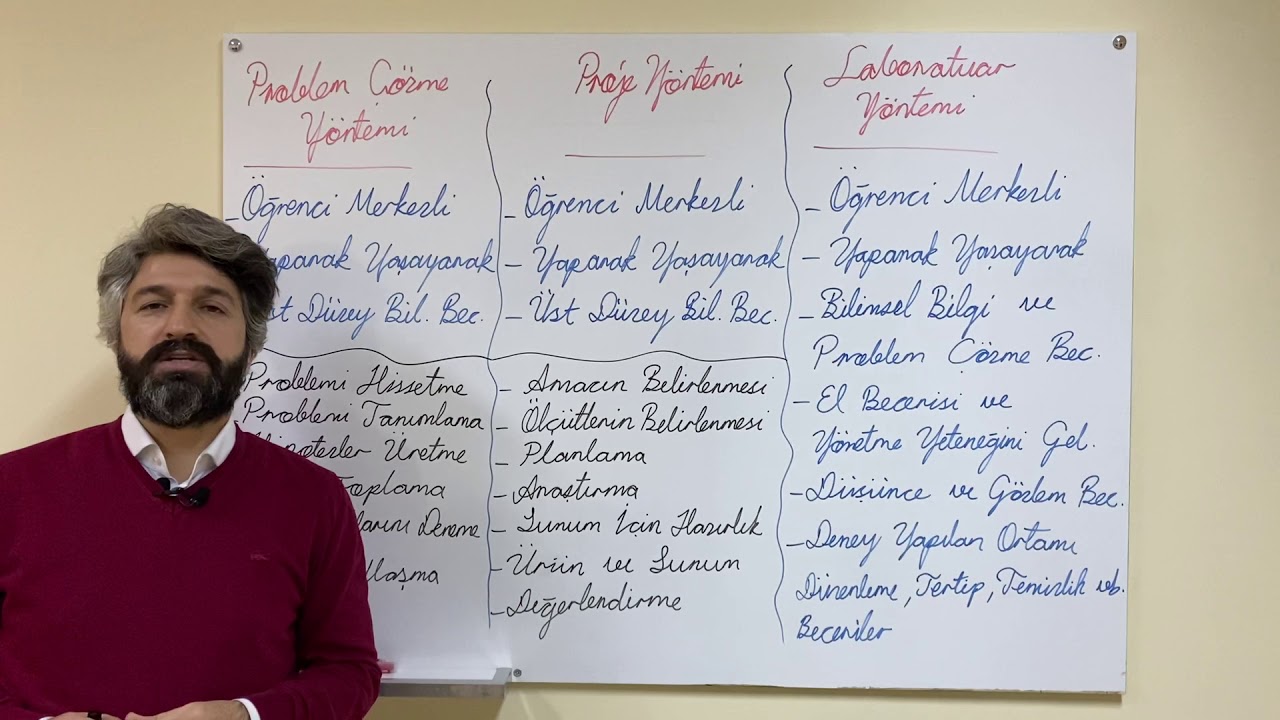 Problem Çözme
Yöntemi
Öğrenci Merkezli
Yaşayarak
Düzey Bil. Bec.
Problemi Hissetme
Problemi Tanımlama
Üretme
Toplama
Deneme
Proje Yöntemi
- Öğrenci Merkezli
- Yaparak Yaşayarak
- Üst Düzey Bil. Bec.
- Amacın Belirlenmesi
- Ölçütlerin Belirlenmesi
- Planlama
- Araştırma
- Sunum İçin Hazırlık
- Ürün ve Sunum
- Değerlendirme
Laboratuar
Yöntemi
- Öğrenci Merkezli
- Yaparak Yaşayarak
- Bilimsel Bilgi ve
Problem Çözme Bec.
- El Becerisi ve
Yönetme Yeteneğini Gel.
- Düşünce ve Gözlem Bec.
- Deney Yapılan Ortamı
Düzenleme, Tertip, Temizlik vb.
Beceriler